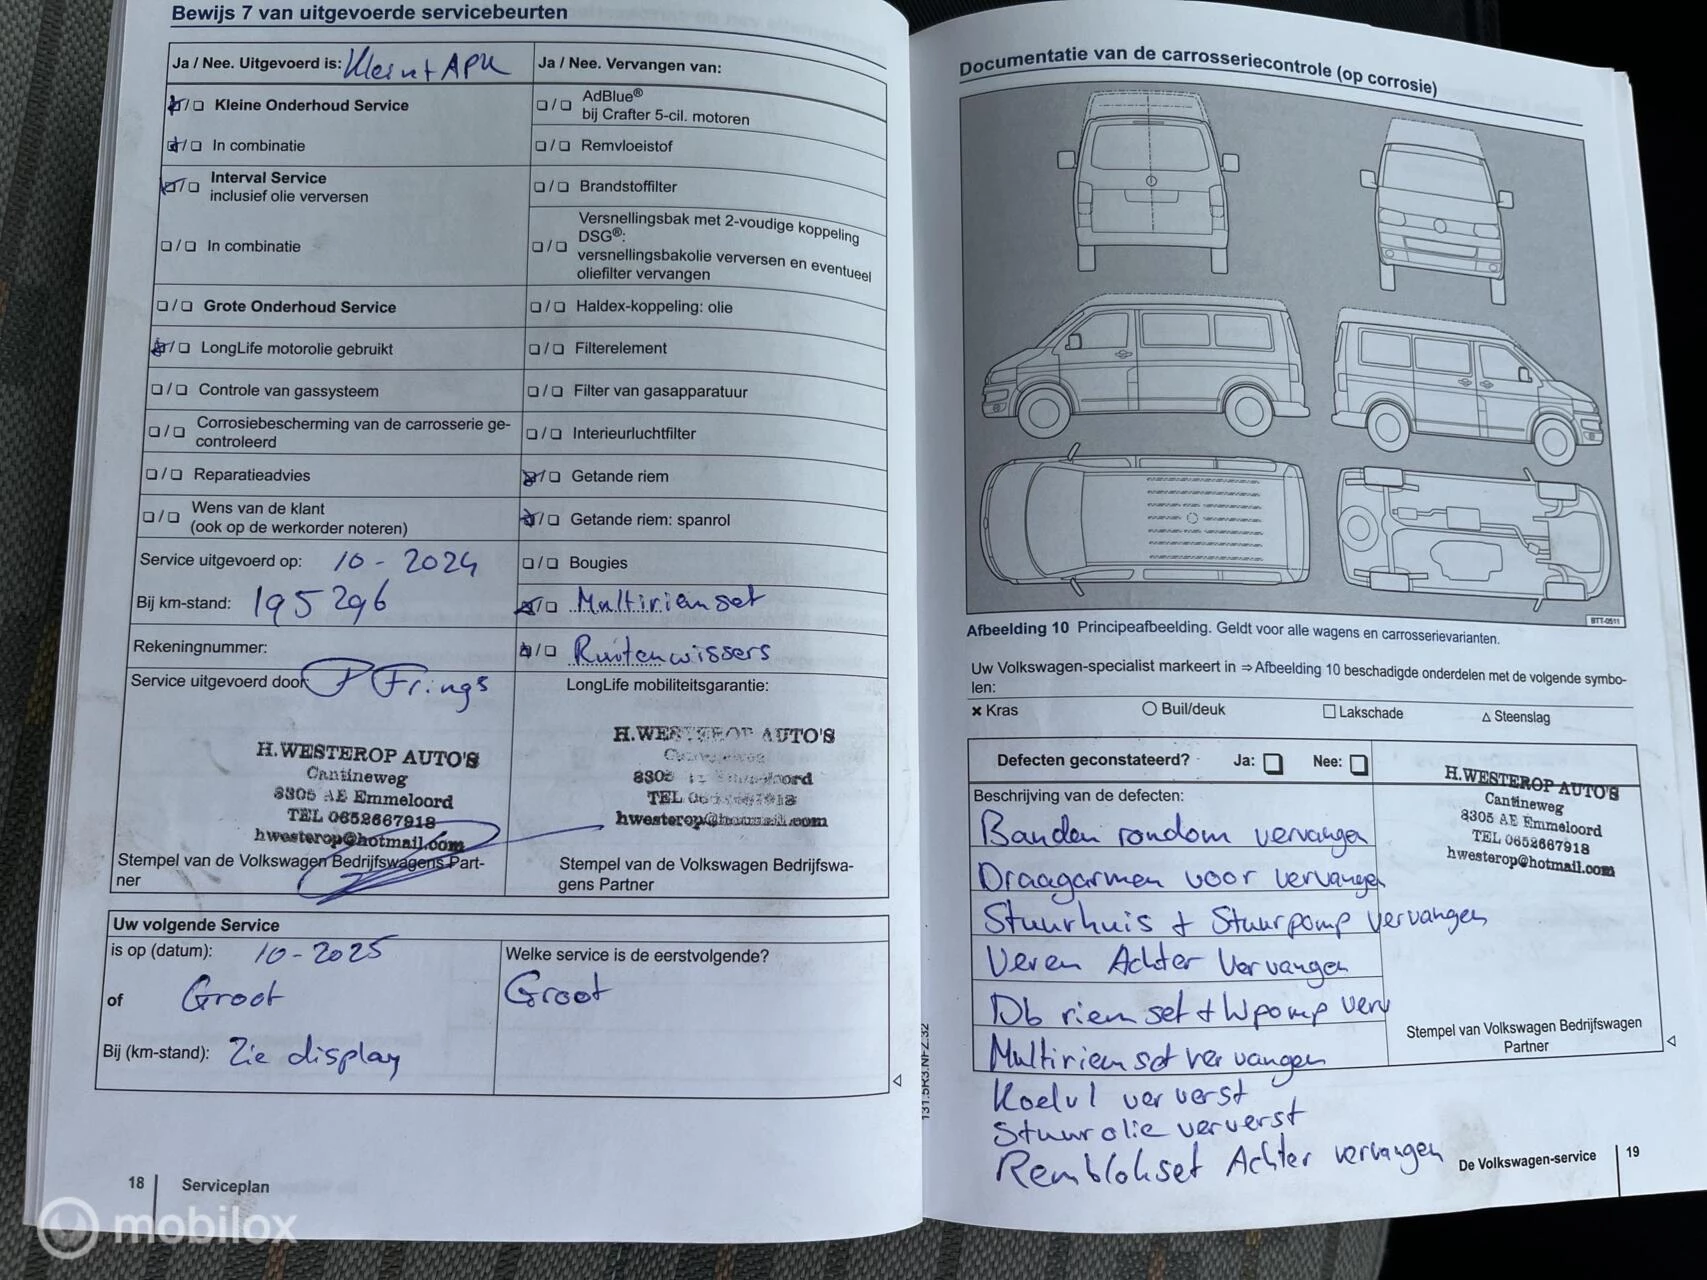 Bewijs 7 van uitgevoerde servicebeurten
Ja / Nee. Uitgevoerd is: Klein + APK
Ja / Nee. Vervangen van:
Kleine Onderhoud Service
In combinatie
Interval Service
inclusief olie verversen
In combinatie
Grote Onderhoud Service
LongLife motorolie gebruikt
Controle van gassysteem
Corrosiebescherming van de carrosserie ge-
controleerd
Reparatieadvies
Wens van de klant
(ook op de werkorder noteren)
Service uitgevoerd op: 10-2024
Bij km-stand: 195296
Rekeningnummer:
Service uitgevoerd door: P Frings
H.WESTEROP AUTO'S
Cantineweg
8305 AE Emmeloord
TEL 0652667918
hwesterop@hotmail.com
Stempel van de Volkswagen Bedrijfswagens Part-
ner
AdBlue®
bij Crafter 5-cil. motoren
Remvloeistof
Brandstoffilter
Versnellingsbak met 2-voudige koppeling
DSG®:
versnellingsbakolie verversen en eventueel
oliefilter vervangen
Haldex-koppeling: olie
Filterelement
Filter van gasapparatuur
Interieurluchtfilter
Getande riem
Getande riem: spanrol
Bougies
Multiriemset
Ruitenwissers
LongLife mobiliteitsgarantie:
H.WESTEROP AUTO'S
Cantineweg
8305 AE Emmeloord
TEL 0652667918
hwesterop@hotmail.com
Stempel van de Volkswagen Bedrijfswa-
gens Partner
Uw volgende Service
is op (datum): 10-2025
of Groot
Bij (km-stand): Zie display
Welke service is de eerstvolgende?
Groot
18 Serviceplan
131.5R3.NFZ.32
Documentatie van de carrosseriecontrole (op corrosie)
BTT-0511
Afbeelding 10 Principeafbeelding. Geldt voor alle wagens en carrosserievarianten.
Uw Volkswagen-specialist markeert in ⇒ Afbeelding 10 beschadigde onderdelen met de volgende symbo-
len:
Kras Buil/deuk Lakschade Steenslag
Defecten geconstateerd? Ja: Nee:
Beschrijving van de defecten:
Banden rondom vervangen
Draagarmen voor vervangen
Stuurhuis + Stuurpomp vervangen
Veren Achter Vervangen
Db riemset + Wpomp verv
Multiriemset vervangen
Koelvl ververst
Stuurolie ververst
Remblokset Achter vervangen
H.WESTEROP AUTO'S
Cantineweg
8305 AE Emmeloord
TEL 0652667918
hwesterop@hotmail.com
Stempel van Volkswagen Bedrijfswagen
Partner
De Volkswagen-service 19
mobilox